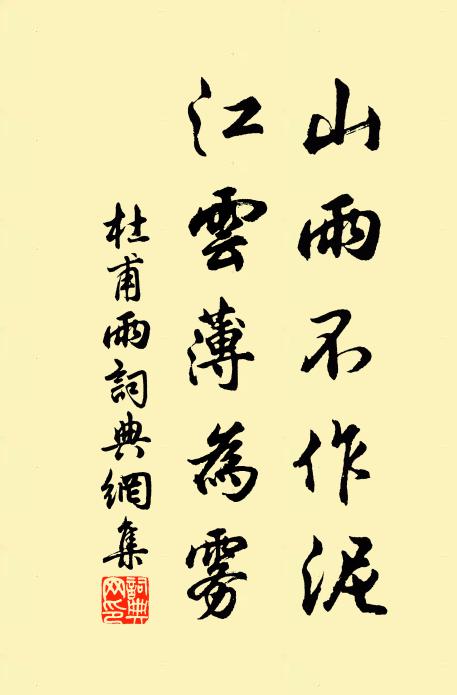 山雨不作泥
江雲薄為霧
杜甫雨詞典網集
詞典網印